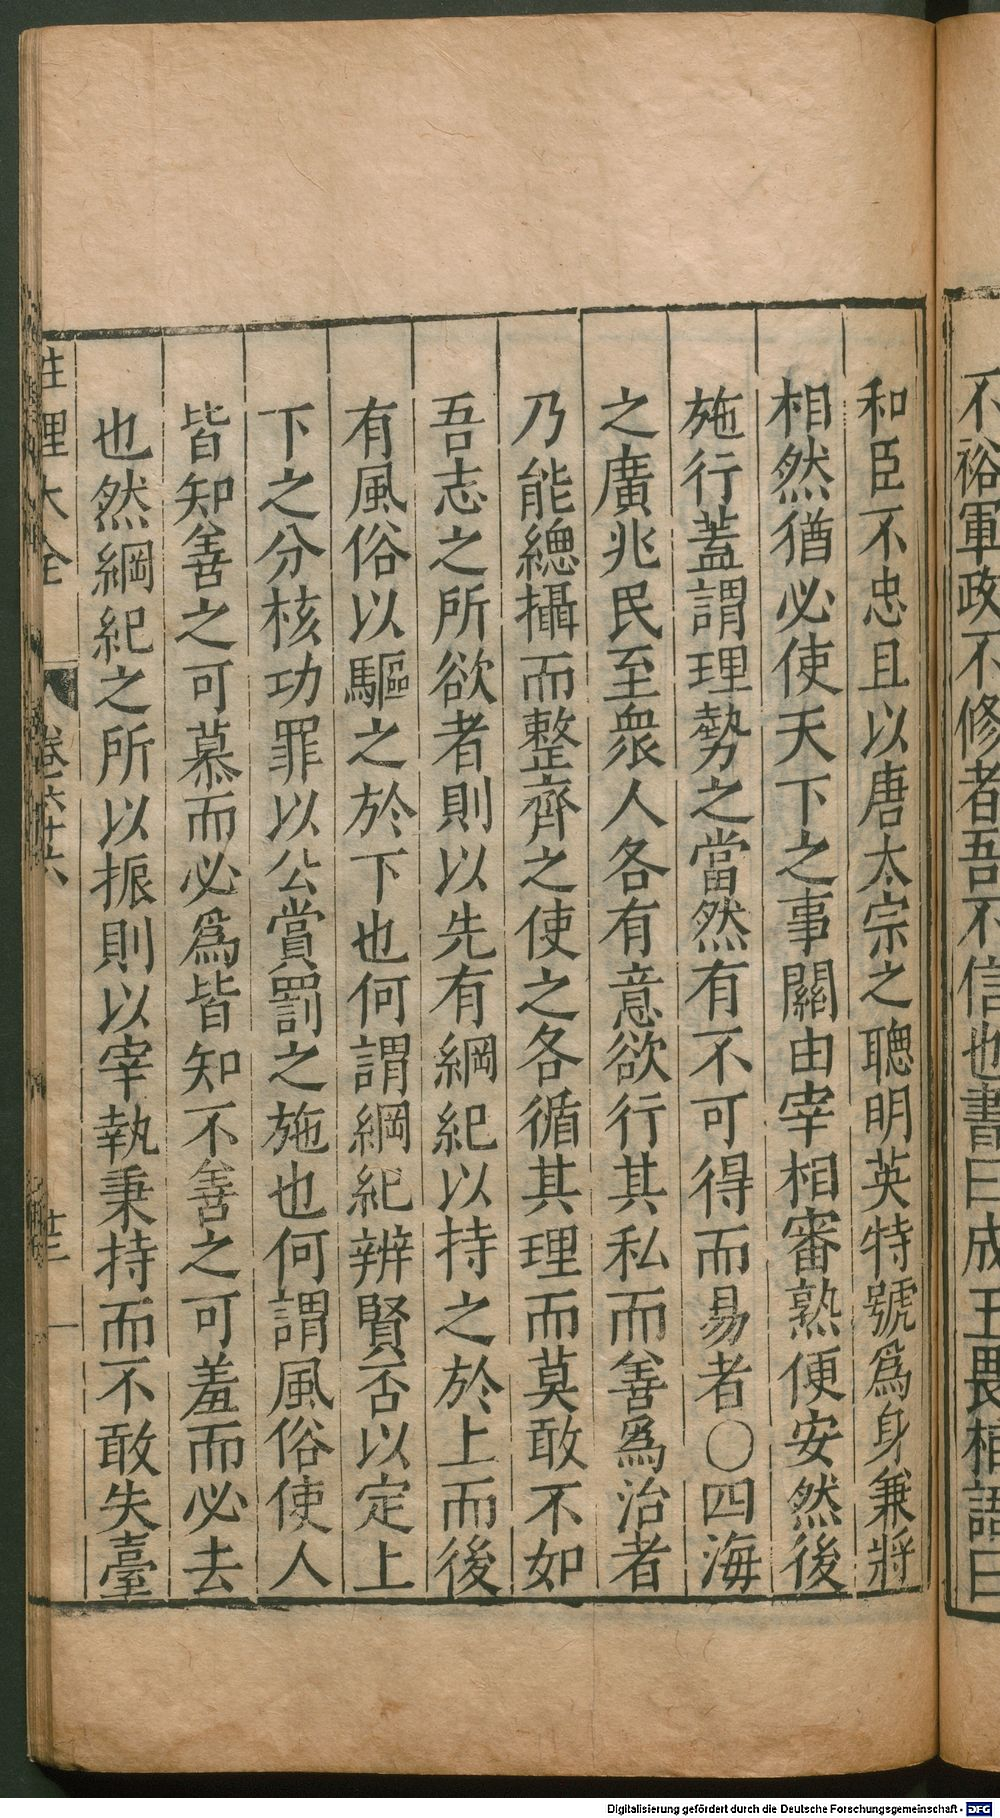 不裕軍政不修者吾不信也書曰成王畏相語曰
和臣不忠且以唐太宗之聰明英特號爲身兼將
相然猶必使天下之事關由宰相審熟便安然後
施行蓋謂理勢之當然有不可得而易者〇四海
之廣兆民至衆人各有意欲行其私而善爲治者
乃能總攝而整齊之使之各循其理而莫敢不如
吾志之所欲者則以先有綱紀以持之於上而後
有風俗以驅之於下也何謂綱紀辨賢否以定上
下之分核功罪以公賞罰之施也何謂風俗使人
皆知善之可慕而必爲皆知不善之可羞而必去
也然綱紀之所以振則以宰執秉持而不敢失臺
性理大全 卷六十六 廿三
Digitalisierung gefördert durch die Deutsche Forschungsgemeinschaft - DFG